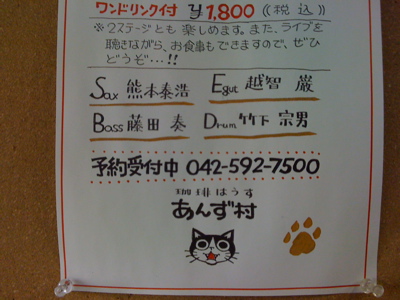 ワンドリンク付 ¥1,800 ((税込))
※2ステージとも楽しめます。また、ライブを
聴きながら、お食事もできますので、ぜひ
どうぞ…!!
Sax 熊本泰浩 Egut 越智 巌
Bass 藤田 奏 Drum 竹下 宗男
予約受付中 042-592-7500
珈琲はうす
あんず村